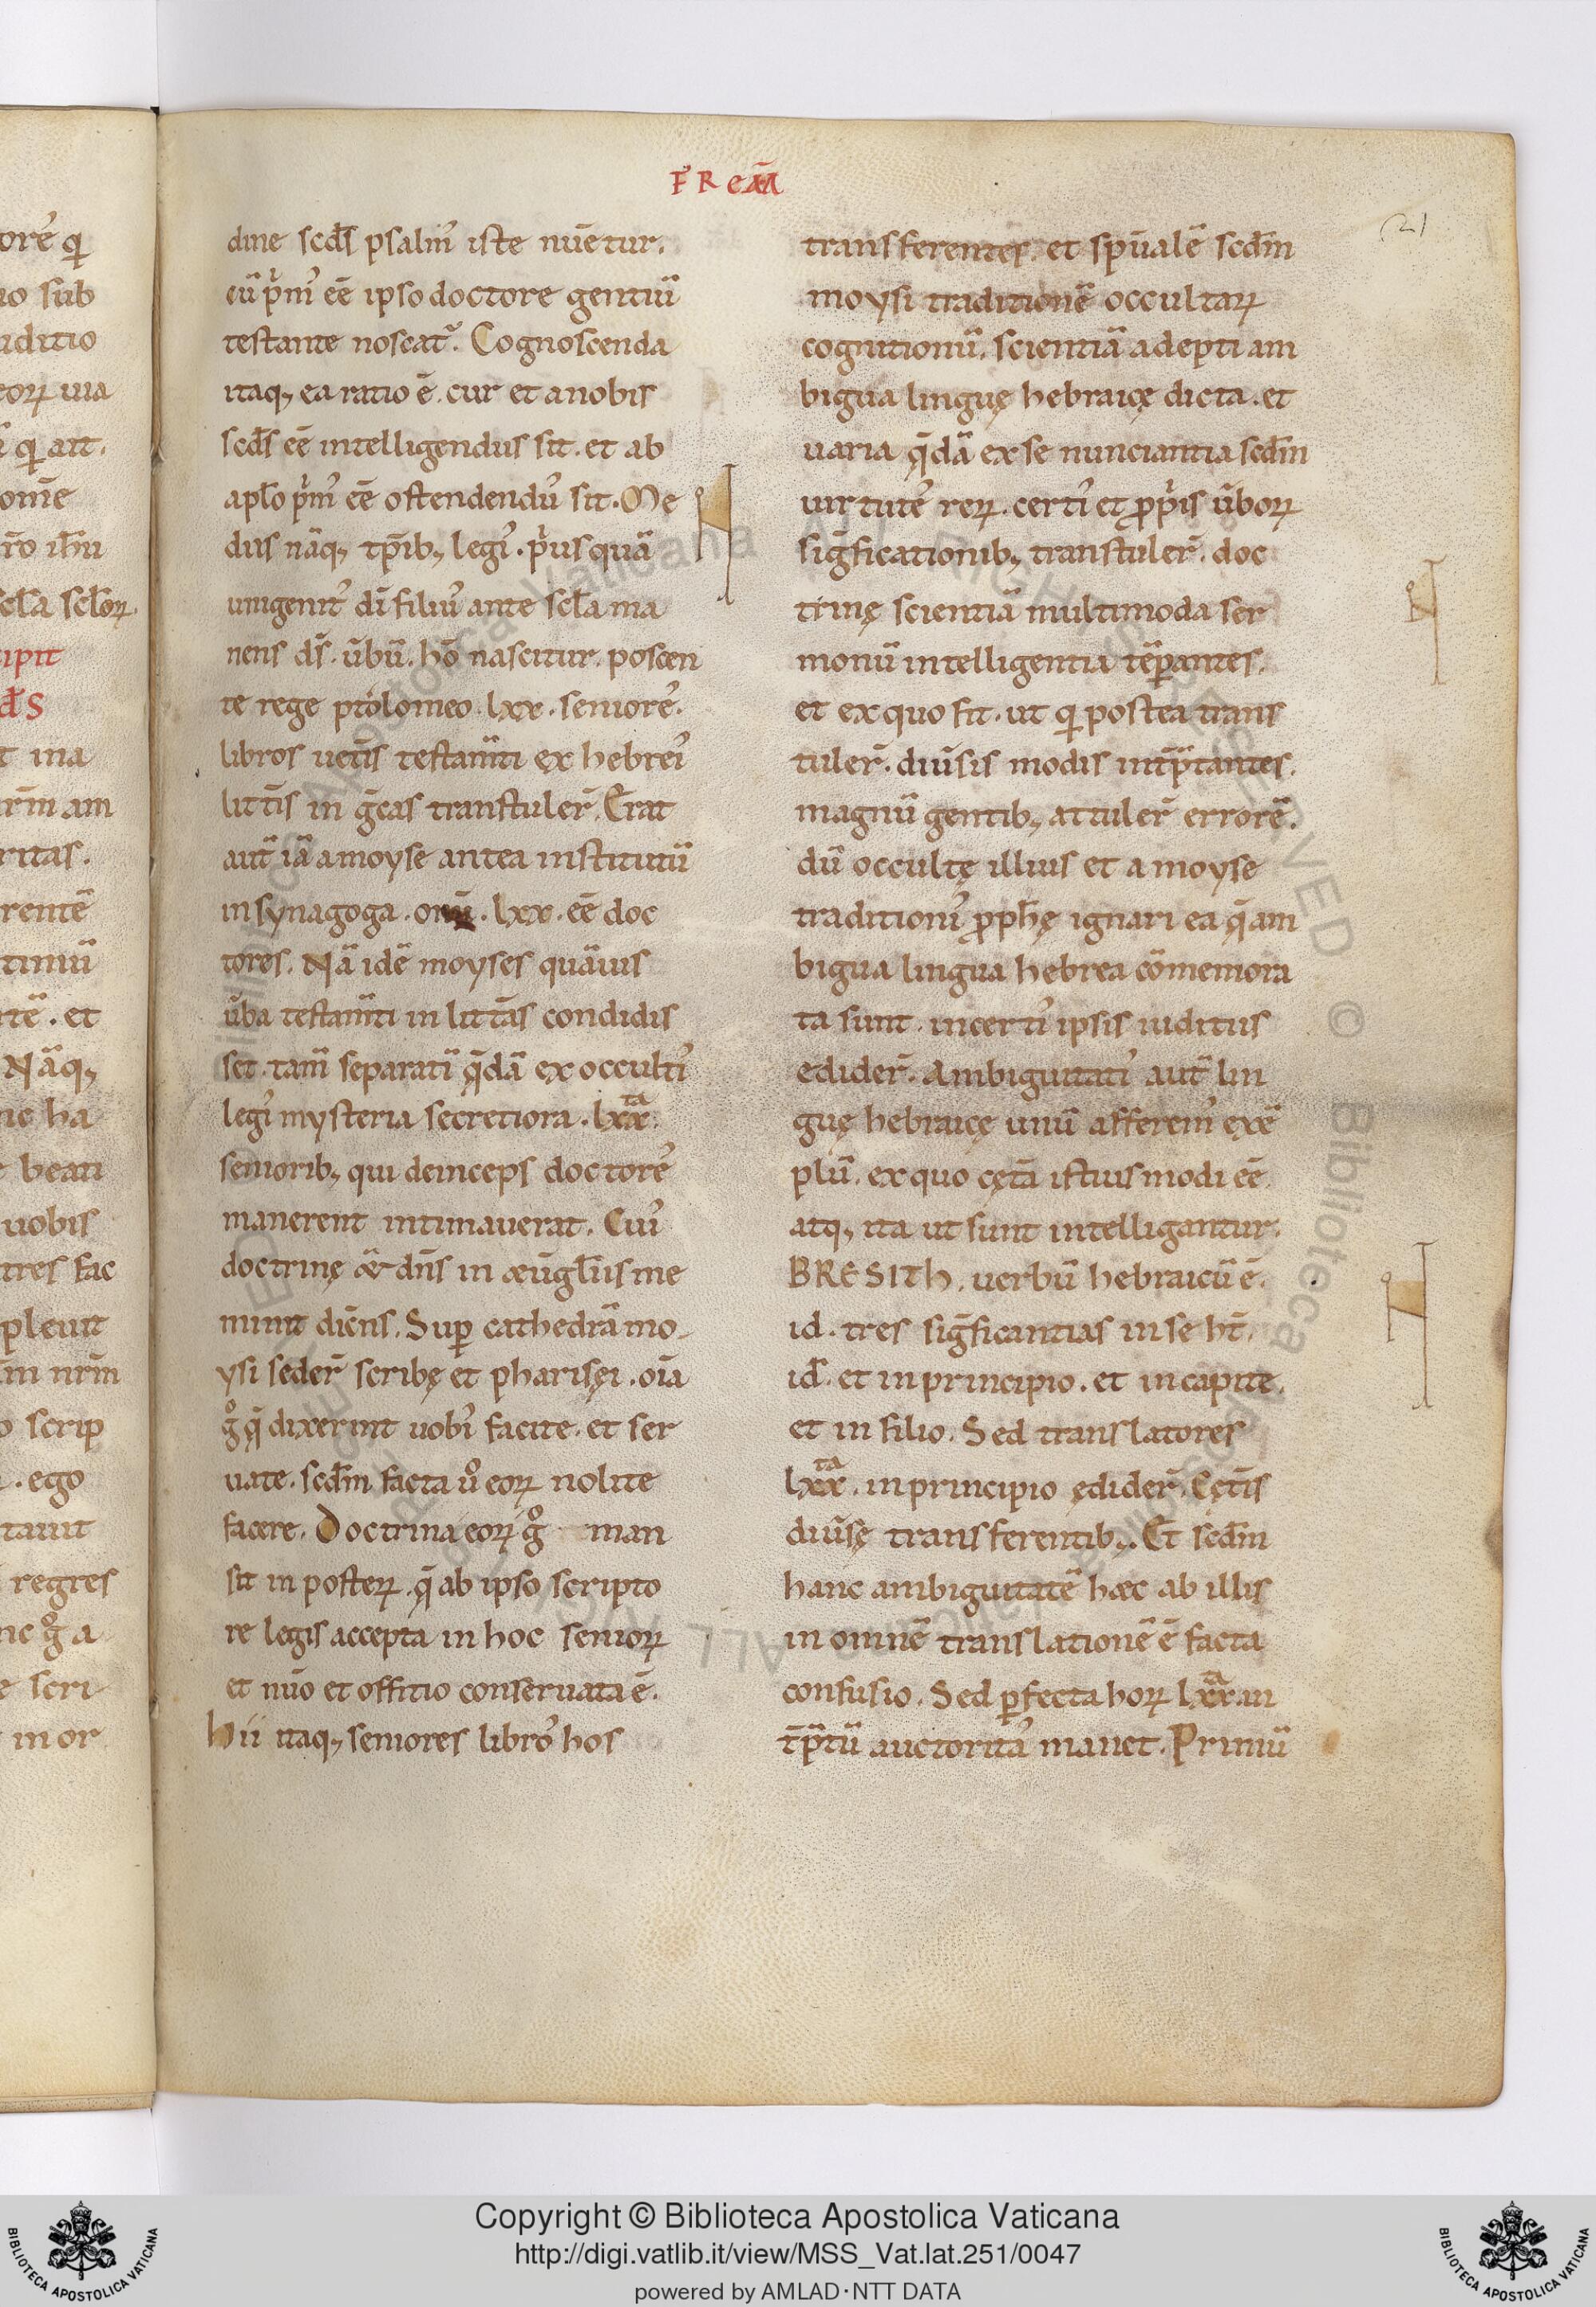 FREM̄A
21
ore᷒ qi
uo sub
aditio
eoꝝ uia
qi ait.
onīe
r̄o ih̄u
scl̄a scl̄oꝝ
ipit
d̄s
t ina
r̄m am
ritas.
rentē
timū
tē. et
Nāq;
ne ha
beati
uobis
tres fac
pleuit
m̄ nr̄m
o scrip
. ego
tauit
regres
nc gͦ a
e scri
in or
dine scd̄s psalm᷒ iste nūetur.
cū pͥm᷒ eē ipso doctore gentiū
testante noscat᷑. Cognoscenda
itaq; ea ratio ē. cur et anobis
scd̄s eē intelligendus sit. et ab
apl̄o pͥm᷒ eē ostendendu᷒ sit. Me
diis nāq; tp̄ib; legi᷒. pͥusquā
unigenit᷒ dī filiu᷒ ante scl̄a ma
nens ds̄. ūbū. hō nascitur. poscen
te rege ptolomeo. lxx. seniore᷒.
libros uet̄is testam̄ti ex hebrei᷒
litt̄is in ḡcas transtuler̄. Erat
aut̄ iā amoyse antea institutū
insynagoga. omī. lxx. eē doc
tores. Nā idē moyses quāuis
ūba testam̄ti in litt̄as condidis
set. tam̄ separatī q̄dā ex occulti᷒
legi᷒ mysteria secretiora. lxxͭᵃ.
seniorib; qui deinceps doctore᷒
manerent intimauerat. Cui᷒
doctrinę &̄ dn̄s in æūgl̄iis me
minit dicn̄s. Suꝑ cathedrā mo
ysi seder̄ scribę et pharisęi. oīa
gͦ q̄ dixerint uobi᷒ facite. et ser
uate. scd̄m facta uͦ eoꝝ nolite
facere. Doctrina eoꝝ gͦ man
sit in posteꝝ. q̄ ab ipso scripto
re legis accepta in hoc senioꝝ
et nūo et offitio conseruata ē.
Hii itaq; seniores libro᷒ hos
transferentes. et sp̄ualē scd̄m
moysi traditionē occultaꝝ
cognitionū. scientiā adepti am
bigua linguę hebraicę dicta. et
uaria q̄dā ex se nunciantia scd̄m
uirtute᷒ reꝝ. certi᷒ et ꝓpͥis ūboꝝ
siḡficationib; transtuler̄. doc
trinę scientiā multimoda ser
monū intelligentia tēꝑantes.
et ex quo fit. ut qi postea trans
tuler̄. diūsis modis int̄p̄tantes.
magnū gentib; attuler̄ errorē.
dū occultę illius et a moyse
traditioni᷒ ꝓph̄ę ignari ea q̄ am
bigua lingua hebrea cōmemora
ta sunt. incerti᷒ ipsis iuditiis
edider̄. Ambiguitati᷒ aut̄ lin
guę hebraicę unū afferem᷒ exē
plū. ex quo cęt̄a istiusmodi eē.
atq; ita ut sunt intelligantur.
BRESITH. uerbū hebraicū ē.
id. tres siḡficantias inse ht̄.
id̄. et inprincipio. et incapite.
et in filio. Sed translatores
lxxͭᵃ. inprincipio ędider̄. Cęt̄is
diūsę transferentib;. Et scd̄m
hanc ambiguitatē hæc ab illis
in omnē translationē ē facta
confusio. Sed ꝑfecta hoꝝ lxxͭᵃ. in
t̄p̄tū auctorita᷒ manet. Primū
Copyright © Biblioteca Apostolica Vaticana
http://digi.vatlib.it/view/MSS_Vat.lat.251/0047
powered by AMLAD·NTT DATA
BIBLIOTECA APOSTOLICA VATICANA
BIBLIOTECA APOSTOLICA VATICANA